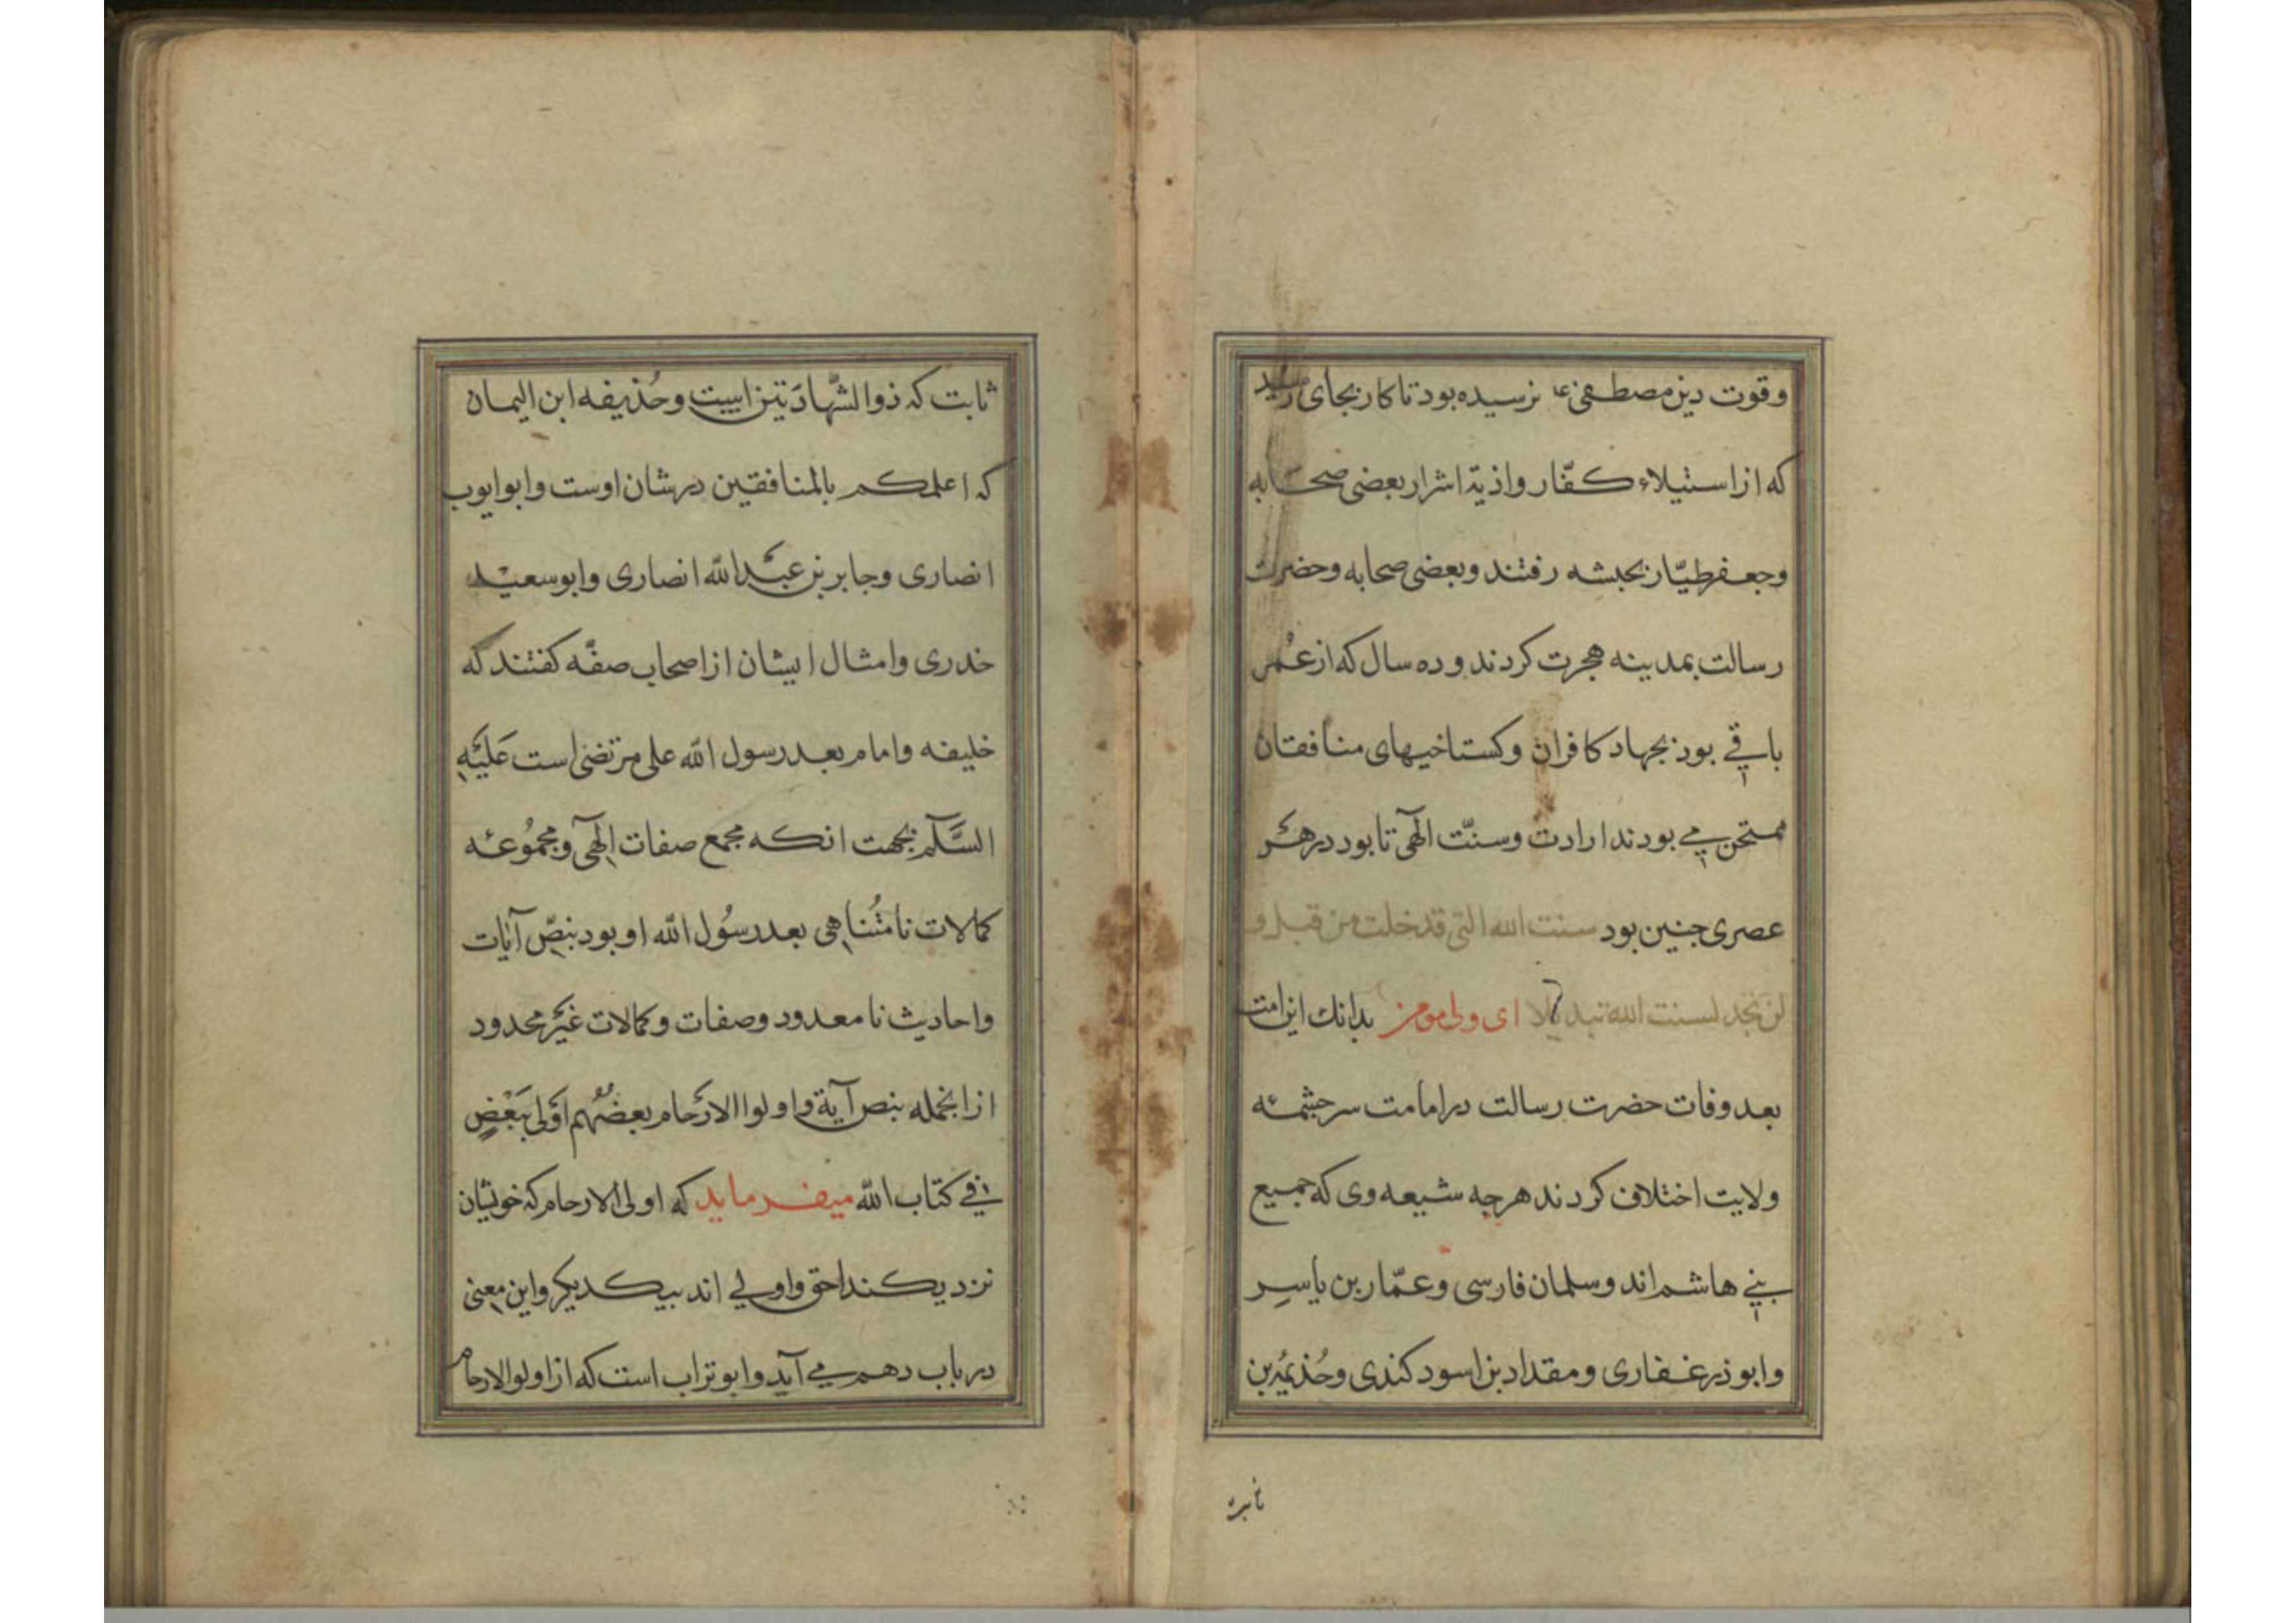 وقوت دین مصطفی ع نرسیده بود تا کار بجای رسید
که از استیلاء کفّار واذیة اشرار بعضی صحابه
وجعفر طیّار بحبشه رفتند وبعضی صحابه وحضرت
رسالت بمدینه هجرت کردند و ده سال که از عُمر
باقی بود بجهاد کافران وکستاخیهای منافقان
ممتحن می بودند ارادت وسنّت الهی تا بود در هر
عصری جنین بود سنت الله التی قد خلت من قبل و
لن تجد لسنت الله تبدیلا ای ولی مومن بدانك این امت
بعد وفات حضرت رسالت در امامت سرجشمه
ولایت اختلاف کردند هرجه شیعه وی که جمیع
بنی هاشم اند وسلمان فارسی وعمّار بن یاسِر
وابوذر غفاری ومقداد بن اسود کندی وحُذیمَة بن
ثابت
ثابت که ذوالشّهادَتین است وحُذیفه ابن الیمان
که اعلمکم بالمنافقین در شان اوست وابوایوب
انصاری وجابر بن عبْدالله انصاری وابوسعیْد
خدری وامثال ایشان از اصحاب صفّه کفتند که
خلیفه وامام بعد رسول الله علی مرتضی است عَلیْهِ
السَّلٰم بجهت انکه مجمع صفات اِلٓهی ومجمُوعه
کمالات نامتُناهی بعد رسُول الله او بود بنصِّ آیات
واحادیث نامعدود وصفات وکمالات غیْر محدود
از انجمله بنص آیة واولوا الارْحام بعضُهُم اَوْلی بِبَعْضٍ
فی کتاب الله میفرماید که اولی الارحام که خویشان
نزدیکند احق واولی اند بیکدیکر واین معنی
در باب دهم می آید وابوتراب است که از اولوالارحام